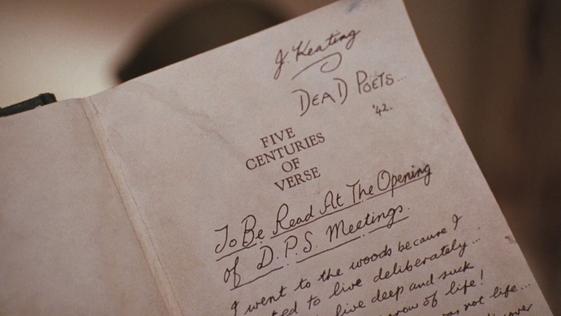 J. Keating
DEAD POETS...
'42.
FIVE
CENTURIES
OF
VERSE
To Be Read At The Opening
of D.P.S. Meetings.
I went to the woods because I
ted to live deliberately...
live deep and suck
row of life!
was not life...